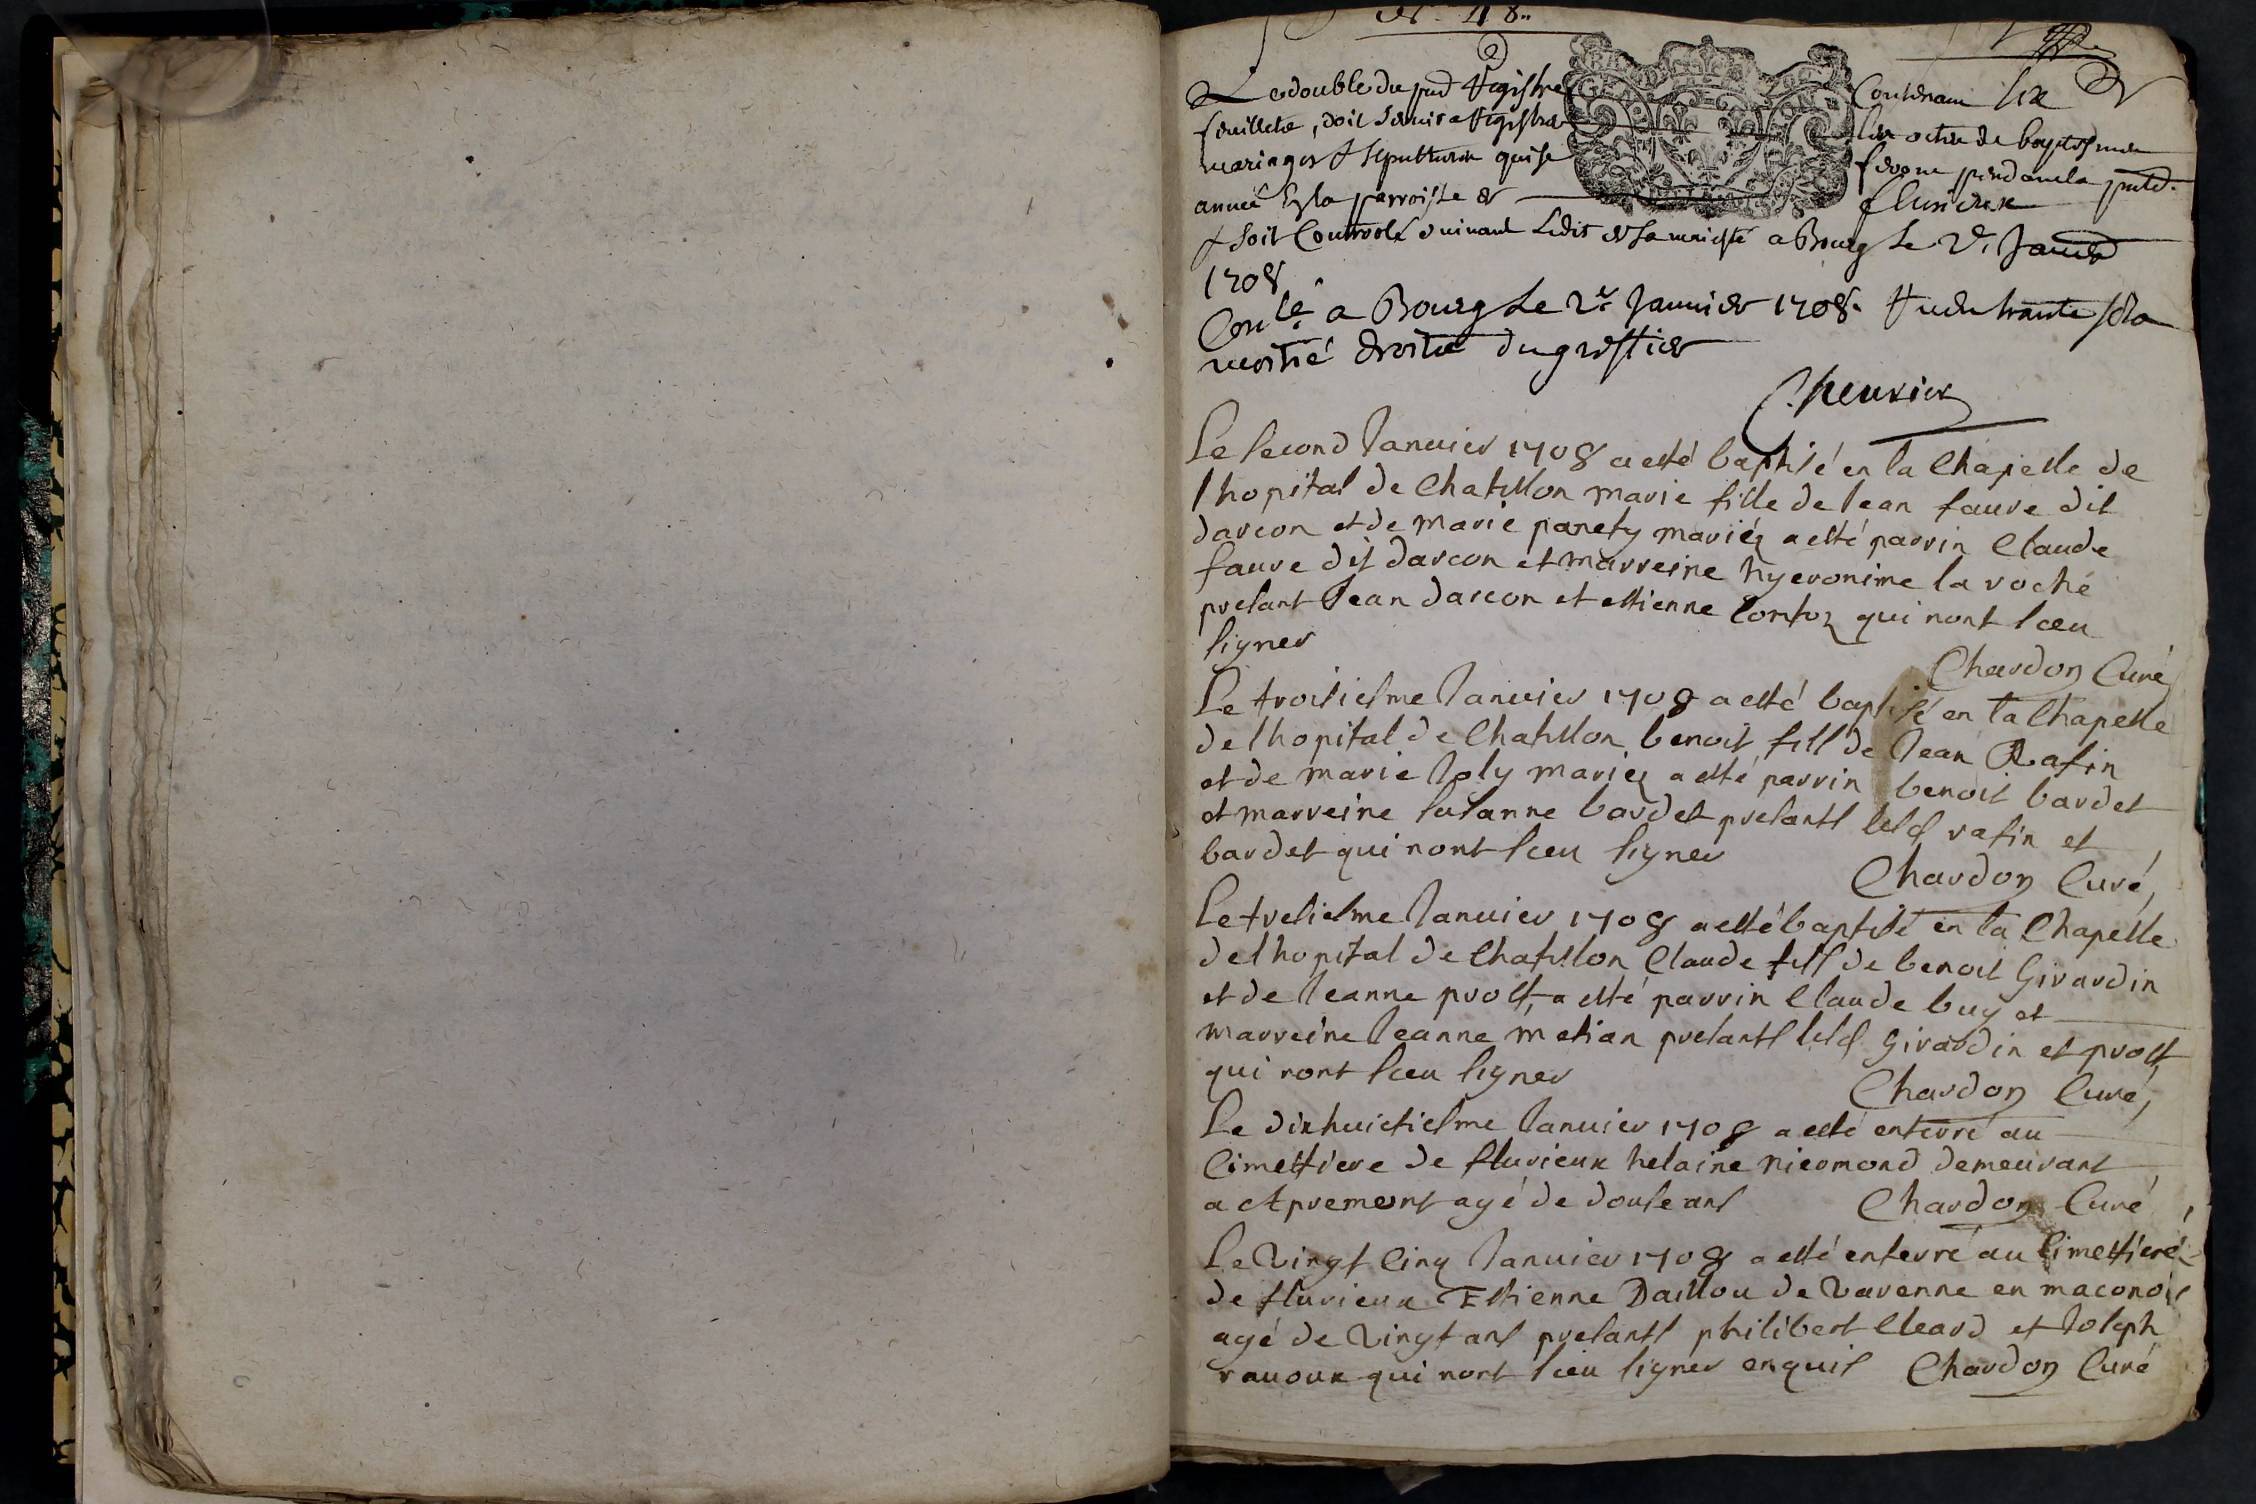 Le double du pnt Registre Contenant six
feuillets, doit servir a Registrer les actes de baptesmes
mariages & sepultures qui se feront pendant la pnte
année En la parroisse de fluirieux
& soit Controlé suivant Ledit de sa majesté a Bourg Le 2e Janvier
1708
Conlé a Bourg Le 2e Janvier 1708. Receu trante sols
moitié droits du greffier
Chevrier
Le second Janvier 1708 a esté baptisé en la Chapelle de
lhopital de Chatillon marie fille de Jean faure dit
darcon et de marie panety mariéz a esté parrin Claude
faure dit darcon et marreine hyeronime la roche
presant Jean darcon et estienne Contoz qui nont sceu
signer
Chardon Curé
Le troisiesme Janvier 1708 a esté baptisé en la Chapelle
de lhopital de Chatillon benoit fils de Jean Rafin
et de marie Joly mariez a esté parrin benoit bardet
et marreine susanne bardet presants lesd rafin et
bardet qui nont sceu signer
Chardon Curé,
Le tresiesme Janvier 1708 a esté baptisé en la Chapelle
de lhopital de Chatillon Claude fils de benoit Girardin
et de Jeanne prost, a esté parrin Claude buy et
marreine Jeanne metian presants lesd Girardin et prost
qui nont sceu signer
Chardon Curé,
Le dixhuictiesme Janvier 1708 a esté enterré au
Cimettiere de flurieux helaine niermond demeurant
a Apremont agé de douse ans Chardon Curé
Le Vingt Cinq Janvier 1708 a esté enterré au Cimettiere
de flurieux Estienne Daillou de Varenne en maconois
agé de Vingt ans presants philibert Cleard et Joseph
ravoux qui nont sceu signer enquis Chardon Curé